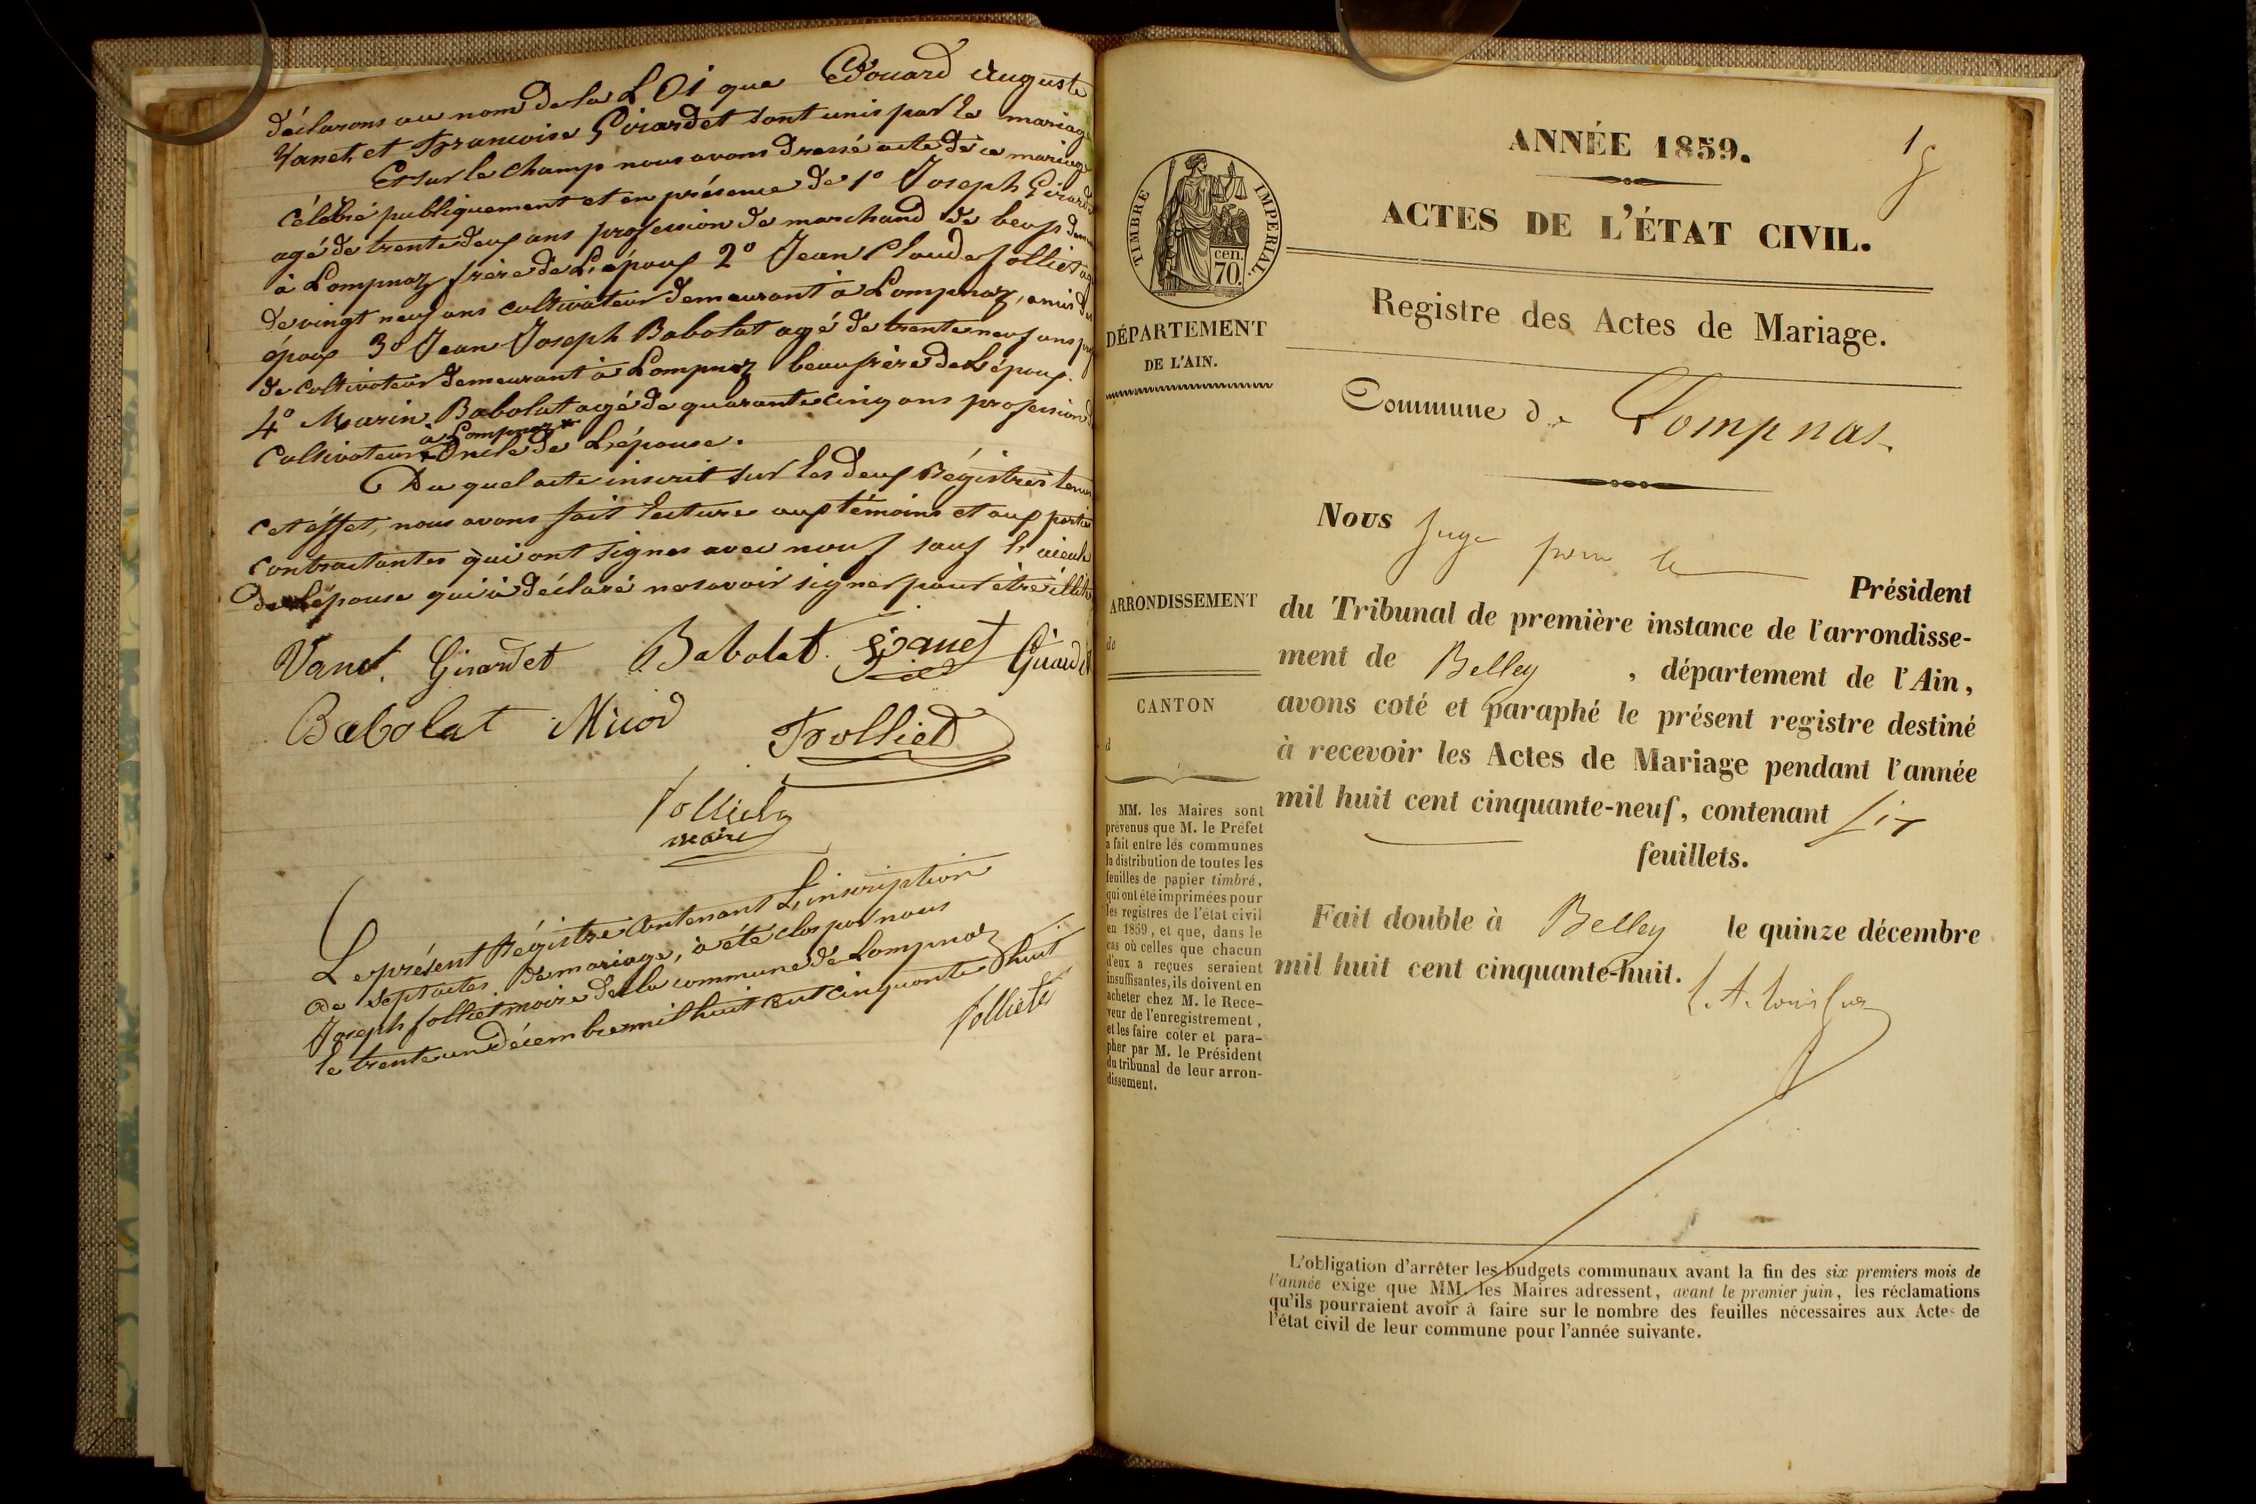 déclarons au nom de la LOI que Edouard Auguste
Vanet, et Francoise Girardet sont unis par le mariage
Et sur le champ nous avons dressé acte de ce mariage
célébré publiquement et en présence de 1° Joseph Girard
agé de trente deux ans profession de marchand de beufs
à Lompnaz frère de L'épouse 2° Jean Claude Jolliet
de vingt neuf ans cultivateur demeurant à Lompnaz, amis des
époux 3° Jean Joseph Babolat agé de trente neuf ans
de cultivateur demeurant à Lompnaz beaufrère de L'époux.
4° Marin Babolat agé de quarante cinq ans profession
à Lompnaz
cultivateur Oncle de L'épouse.
Du quel acte inscrit sur les deux Régistres tenus
cet éffet, nous avons fait lecture aux témoins et aux parties
contractantes qui ont signés avec nous sauf
de L'épouse qui à déclaré ne savoir signer pour être
Vanet. Girardet Babolat. Girardet
Babolat Micod Trolliet
Jolliet
maire
Le présent Régistre contenant L'inscription
de sept actes de mariage, à été clos par nous
Joseph Jolliet maire de la commune de Lompnaz
le trente un décembre mil huit cent cinquante huit
Jolliet
1
ANNÉE 1859.
ACTES DE L'ÉTAT CIVIL.
Registre des Actes de Mariage.
Commune de Lompnas.
TIMBRE IMPÉRIAL.
cen.
70.
DÉPARTEMENT
DE L'AIN.
ARRONDISSEMENT
de
CANTON
d
MM. les Maires sont
prévenus que M. le Préfet
a fait entre les communes
la distribution de toutes les
feuilles de papier timbré,
qui ont été imprimées pour
les registres de l'état civil
en 1859, et que, dans le
cas où celles que chacun
d'eux a reçues seraient
insuffisantes, ils doivent en
acheter chez M. le Rece-
veur de l'enregistrement,
et les faire coter et para-
pher par M. le Président
du tribunal de leur arron-
dissement.
Nous Juge pour le Président
du Tribunal de première instance de l'arrondisse-
ment de Belley , département de l'Ain,
avons coté et paraphé le présent registre destiné
à recevoir les Actes de Mariage pendant l'année
mil huit cent cinquante-neuf, contenant Six
feuillets.
Fait double à Belley le quinze décembre
mil huit cent cinquante-huit.
L'obligation d'arrêter les budgets communaux avant la fin des six premiers mois de
l'année exige que MM. les Maires adressent, avant le premier juin, les réclamations
qu'ils pourraient avoir à faire sur le nombre des feuilles nécessaires aux Actes de
l'état civil de leur commune pour l'année suivante.